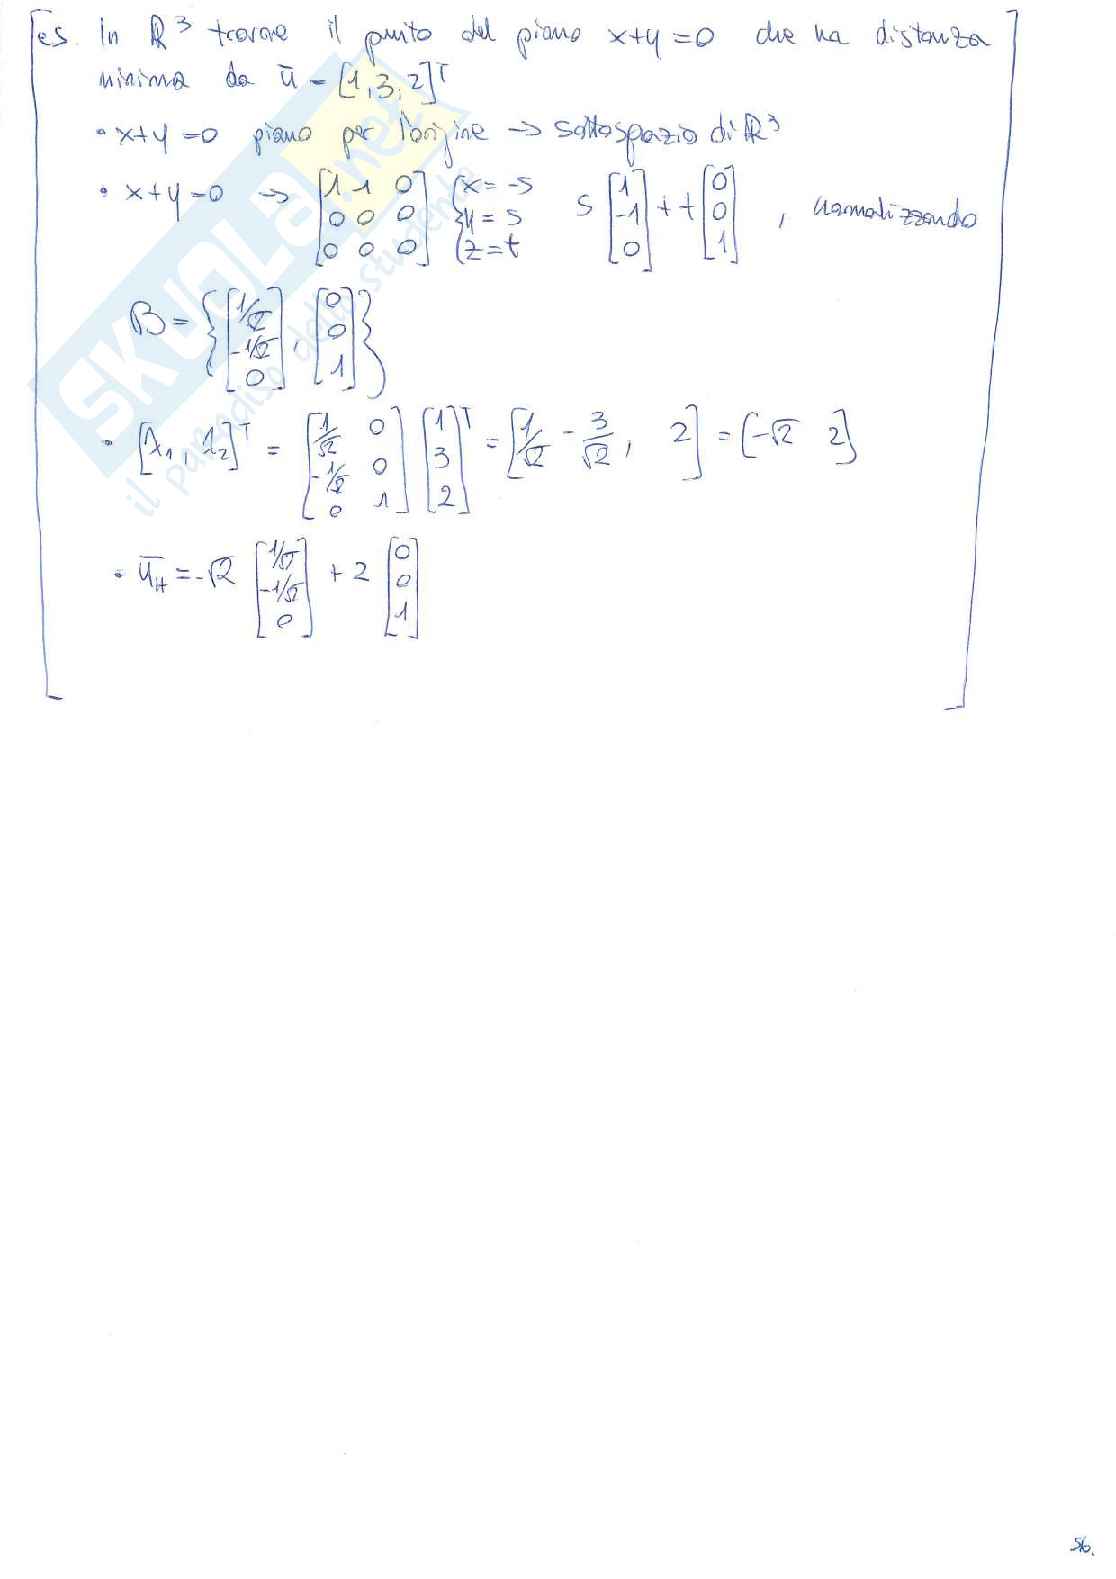 es. In ℝ³ trovare il punto del piano x+y=0 che ha distanza
minima da ū = [1,3,2]ᵀ
• x+y=0 piano per l'origine → sottospazio di ℝ³
• x+y=0 → [1 1 0; 0 0 0; 0 0 0] {x=-s; y=s; z=t s[1; -1; 0] + t[0; 0; 1], normalizzando
B = {[1/√2; -1/√2; 0], [0; 0; 1]}
• [λ₁, λ₂]ᵀ = [1/√2 0; -1/√2 0; 0 1] [1; 3; 2]ᵀ = [1/√2 - 3/√2, 2] = [-√2 2]
• ū_H = -√2 [1/√2; -1/√2; 0] + 2 [0; 0; 1]
SKUOLA.net
il paradiso dello studente
56.